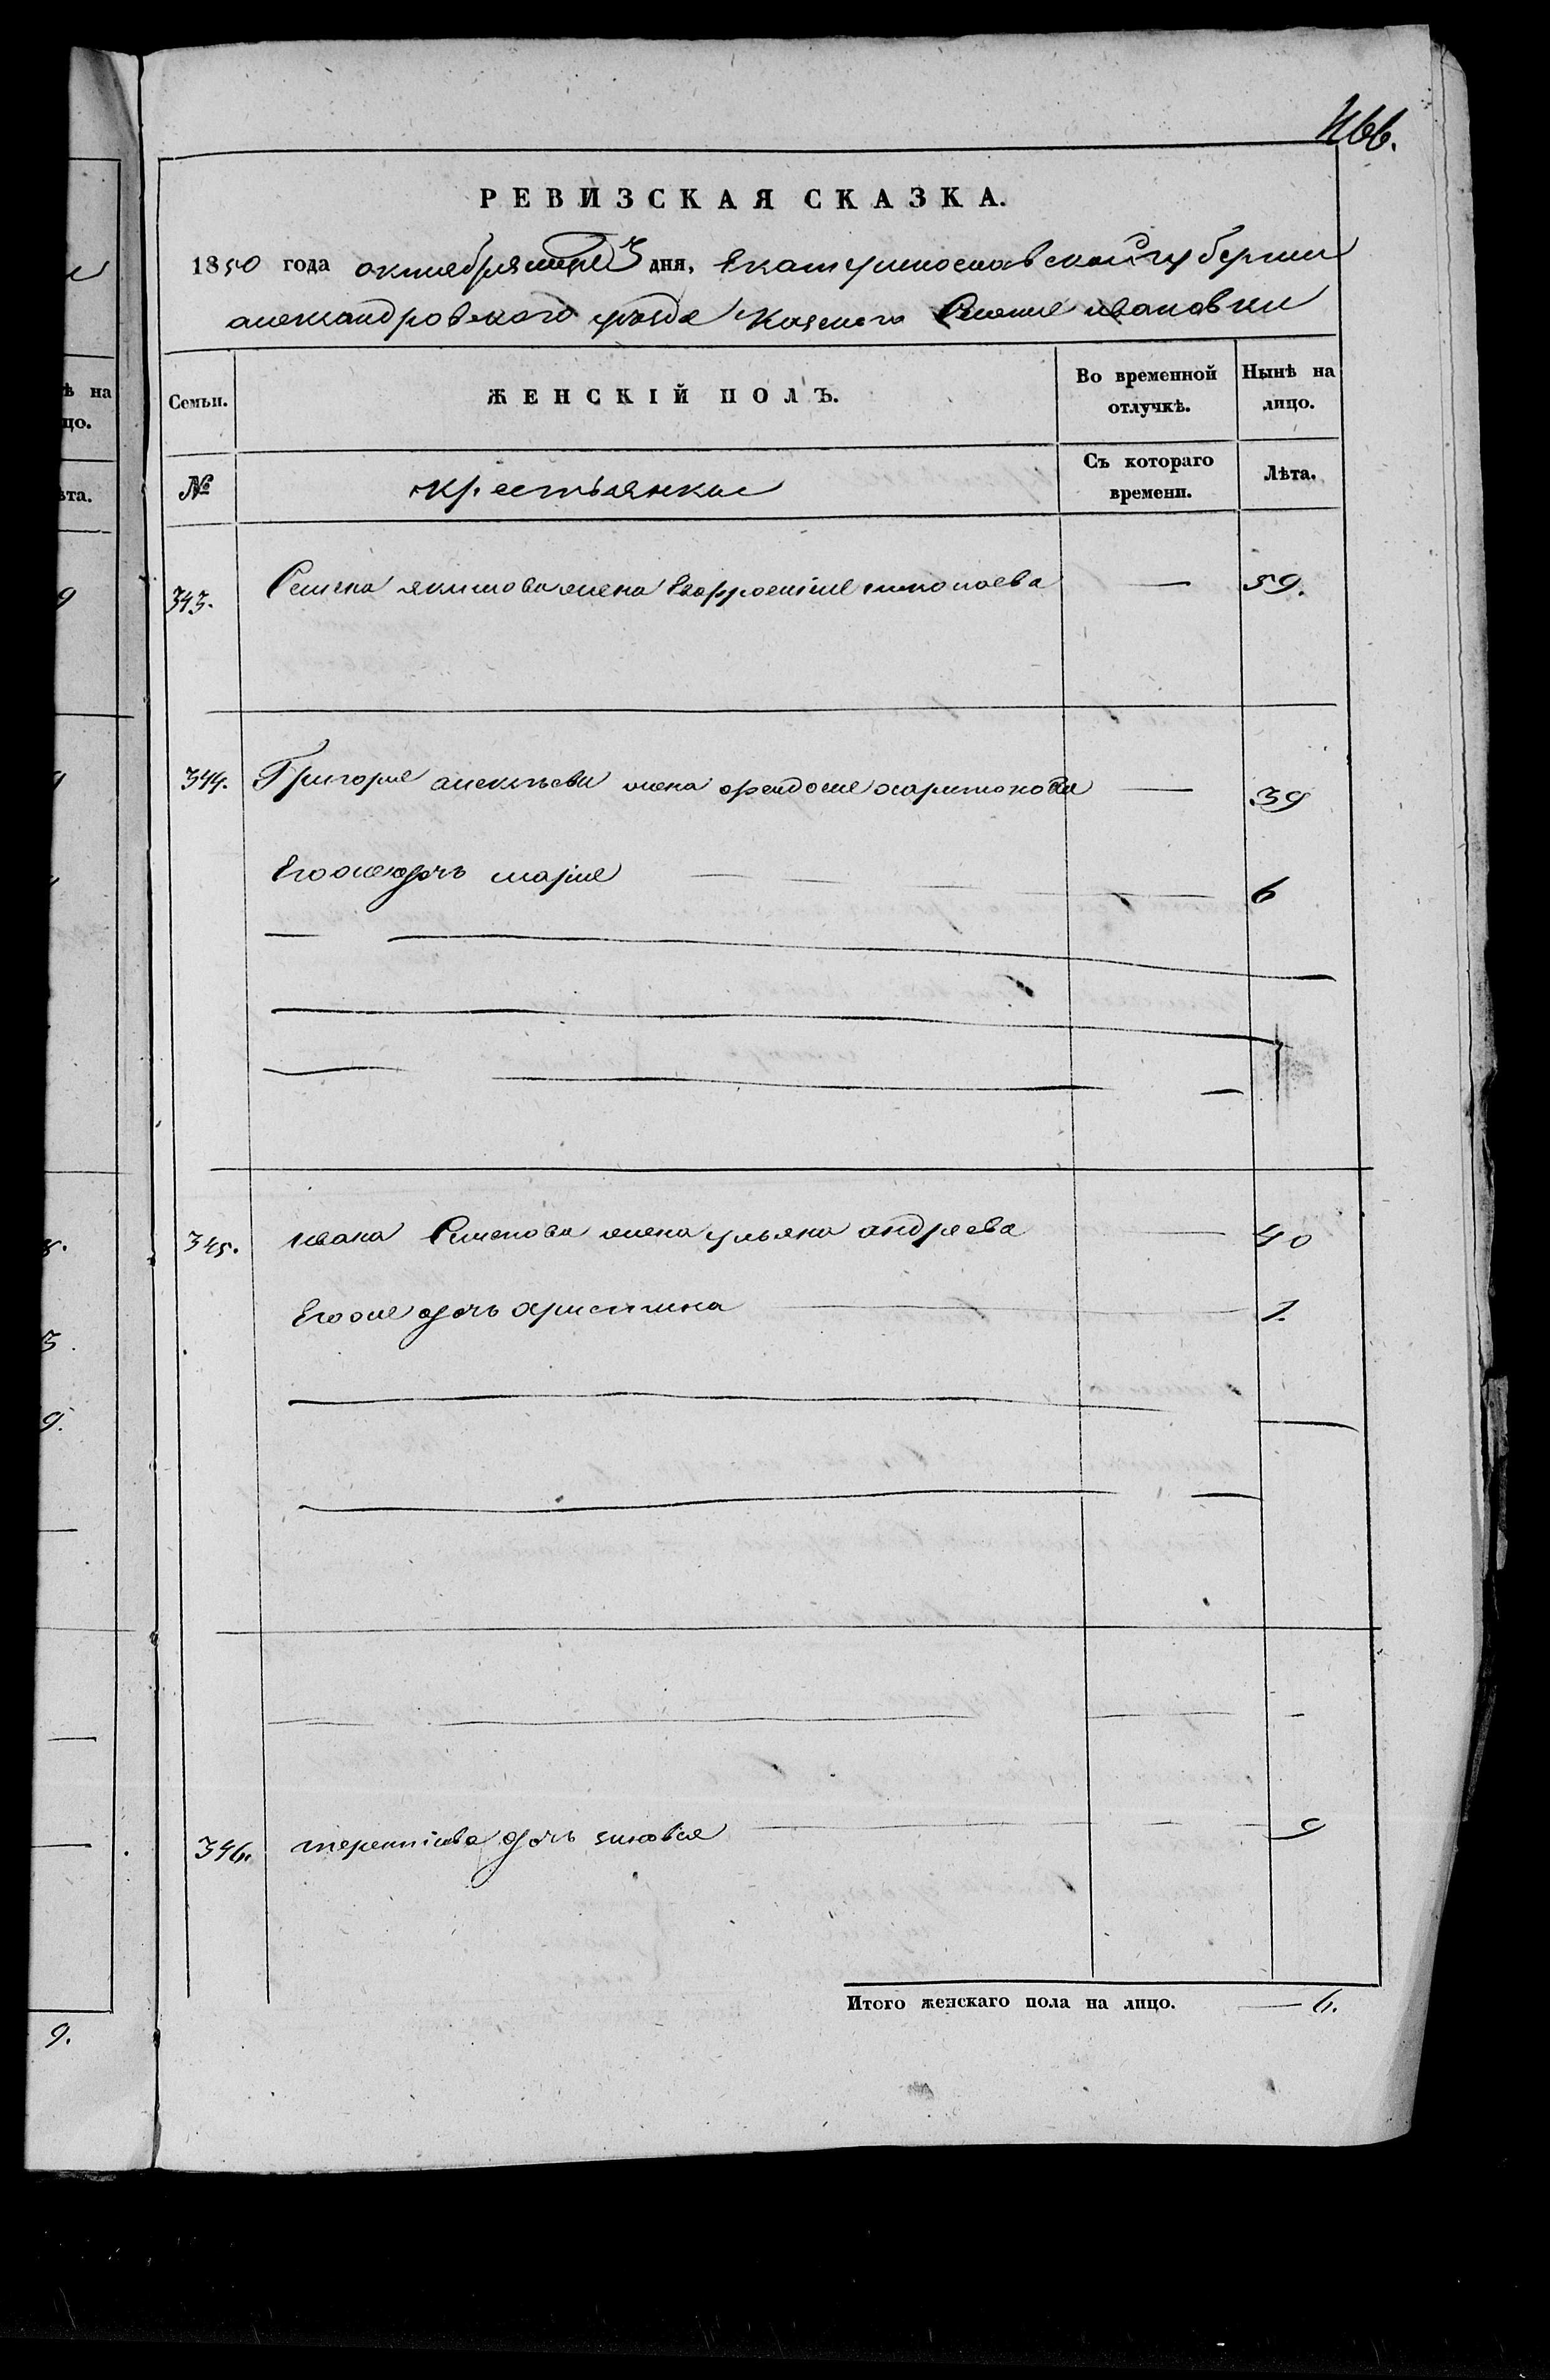 466.
РЕВИЗСКАЯ СКАЗКА.
1850 года октября 3 дня, Екатеринославской губернии
александровского уезда казеного Селение ивановки
Семьи.
ЖЕНСКІЙ ПОЛЪ.
Во временной отлучкѣ.
Нынѣ на лицо.
№
крестьянки
Съ котораго времени.
Лѣта.
343. Семена якимова жена Евфросиние — 59.
344. Григорие алексѣева жена феодосие харитонова — 39
Его же дочь марие — 6
345. ивана Семенова жена ульяна андреева — 40
Его же дочь христина — 1.
346. терентиева дочь зиновия — 9
Итого женскаго пола на лицо. — 6.
ѣ на
цо.
ѣта.
9
3.
9.
9.